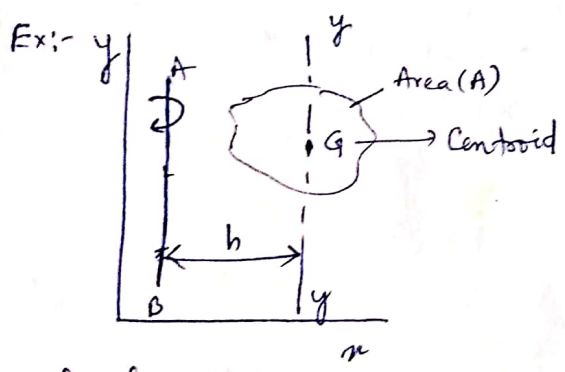 Ex:- y
y
A
Area (A)
G → Centroid
h
B
y
x